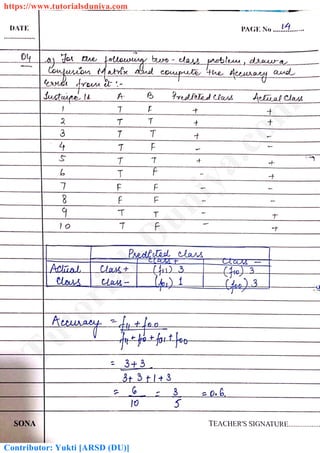 https://www.tutorialsduniya.com
DATE
PAGE No 14
Q4 a) For the following two-class problem, draw a
Confusion Matrix and compute the Accuracy and
Error from it :-
Instance Id A B Predicted Class Actual Class
1 T F + +
2 T T + +
3 T T + -
4 T F - -
5 T T + +
6 T F - +
7 F F - -
8 F F - -
9 T T - +
10 T F - +
Predicted class
class + class -
Actual Class + (f11) 3 (f10) 3
Class Class - (f01) 1 (f00) 3
Accuracy = f11 + f00
f11 + f10 + f01 + f00
= 3+3
3+3+1+3
= 6 = 3 = 0.6.
10 5
SONA
TEACHER'S SIGNATURE
Contributor: Yukti [ARSD (DU)]